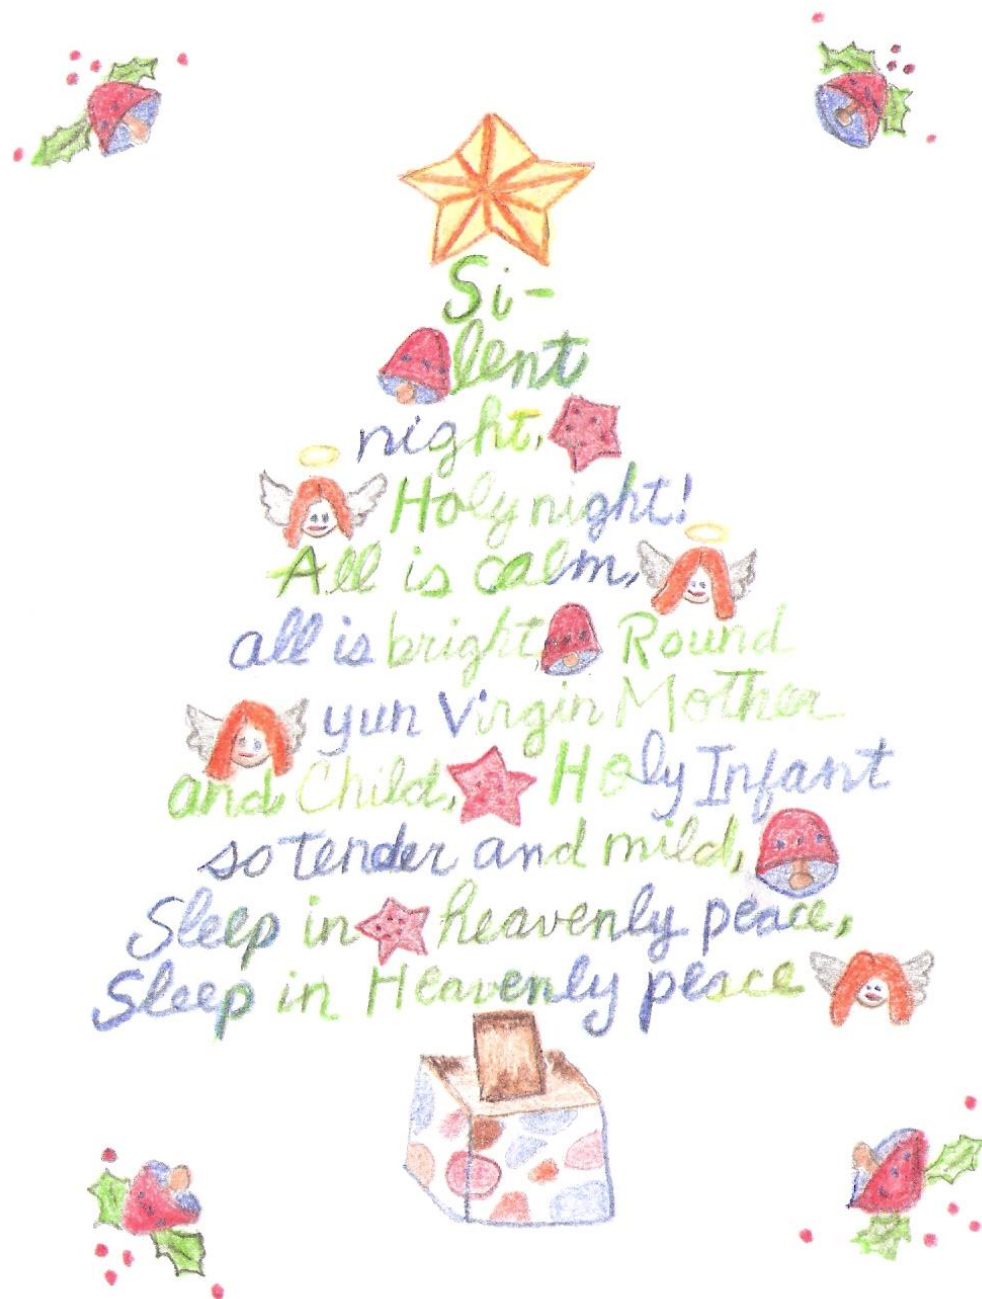 Si-
lent
night,
Holy night!
All is calm,
all is bright, Round
yun Virgin Mother
and Child, Holy Infant
so tender and mild,
Sleep in heavenly peace,
Sleep in Heavenly peace